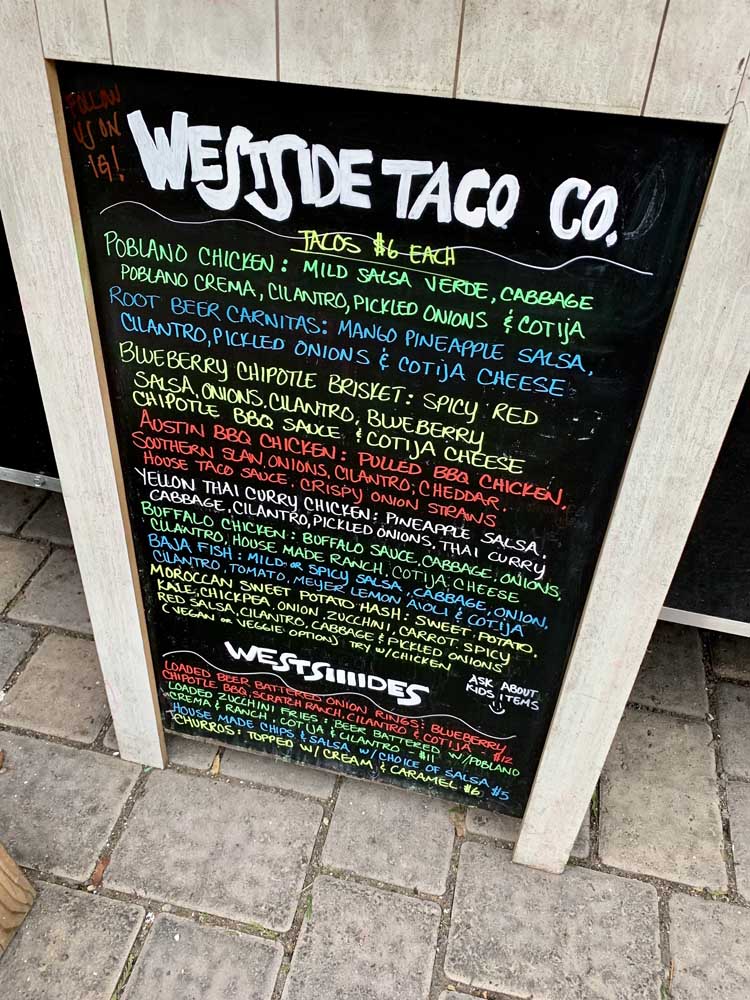 FOLLOW
US ON
IG!
WESTSIDE TACO CO.
TACOS $6 EACH
POBLANO CHICKEN: MILD SALSA VERDE, CABBAGE
POBLANO CREMA, CILANTRO, PICKLED ONIONS & COTIJA
ROOT BEER CARNITAS: MANGO PINEAPPLE SALSA,
CILANTRO, PICKLED ONIONS & COTIJA CHEESE
BLUEBERRY CHIPOTLE BRISKET: SPICY RED
SALSA, ONIONS, CILANTRO, BLUEBERRY
CHIPOTLE BBQ SAUCE & COTIJA CHEESE
AUSTIN BBQ CHICKEN: PULLED BBQ CHICKEN,
SOUTHERN SLAW, ONIONS, CILANTRO, CHEDDAR,
HOUSE TACO SAUCE, CRISPY ONION STRAWS
YELLOW THAI CURRY CHICKEN: PINEAPPLE SALSA,
CABBAGE, CILANTRO, PICKLED ONIONS, THAI CURRY
BUFFALO CHICKEN: BUFFALO SAUCE, CABBAGE, ONIONS,
CILANTRO, HOUSE MADE RANCH, COTIJA CHEESE
BAJA FISH: MILD OR SPICY SALSA, CABBAGE, ONION,
CILANTRO, TOMATO, MEYER LEMON AIOLI & COTIJA
MOROCCAN SWEET POTATO HASH: SWEET POTATO,
KALE, CHICKPEA, ONION, ZUCCHINI, CARROT, SPICY
RED SALSA, CILANTRO, CABBAGE & PICKLED ONIONS
(VEGAN OR VEGGIE OPTION) TRY W/CHICKEN
WESTSIIIIDES
ASK ABOUT
KIDS ITEMS
LOADED BEER BATTERED ONION RINGS: BLUEBERRY
CHIPOTLE BBQ, SCRATCH RANCH, CILANTRO & COTIJA - $12
LOADED ZUCCHINI FRIES: BEER BATTERED W/POBLANO
CREMA & RANCH, COTIJA & CILANTRO - $11
HOUSE MADE CHIPS & SALSA W/ CHOICE OF SALSA $5
CHURROS: TOPPED W/ CREAM & CARAMEL $6